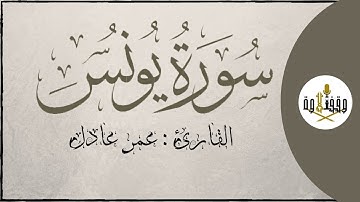 سُورَةُ يُونُسَ
القارئ : عمر عادل